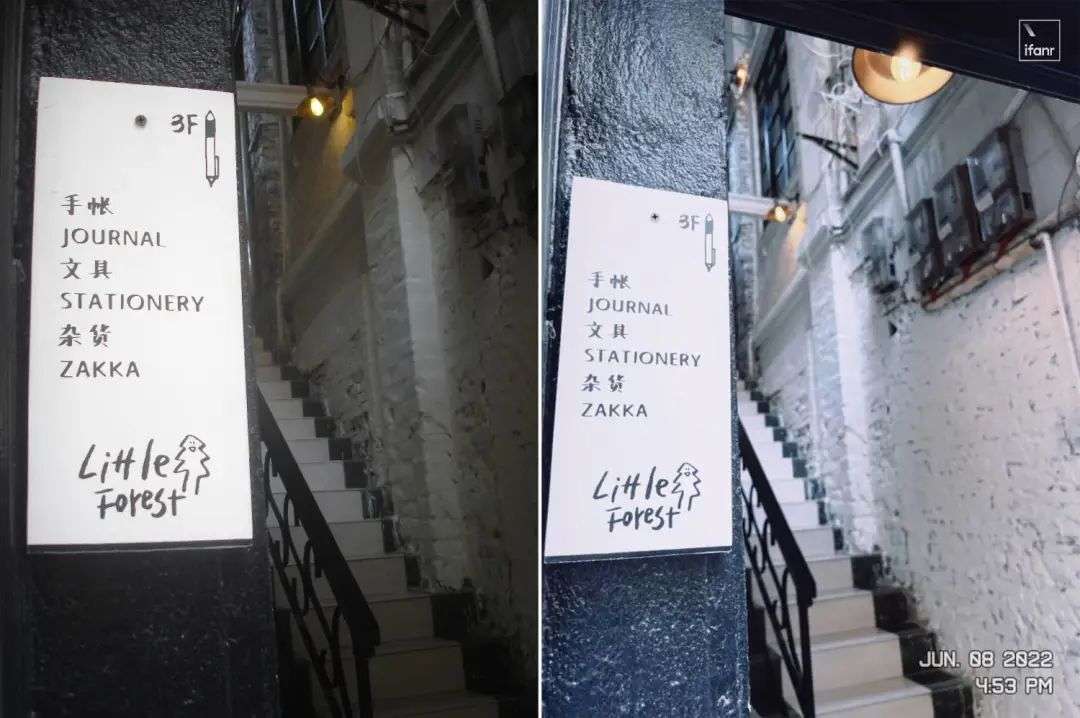 3F
手帐
JOURNAL
文具
STATIONERY
杂货
ZAKKA
Little
Forest
ifanr
3F
手帐
JOURNAL
文具
STATIONERY
杂货
ZAKKA
Little
Forest
JUN. 08 2022
4:53 PM